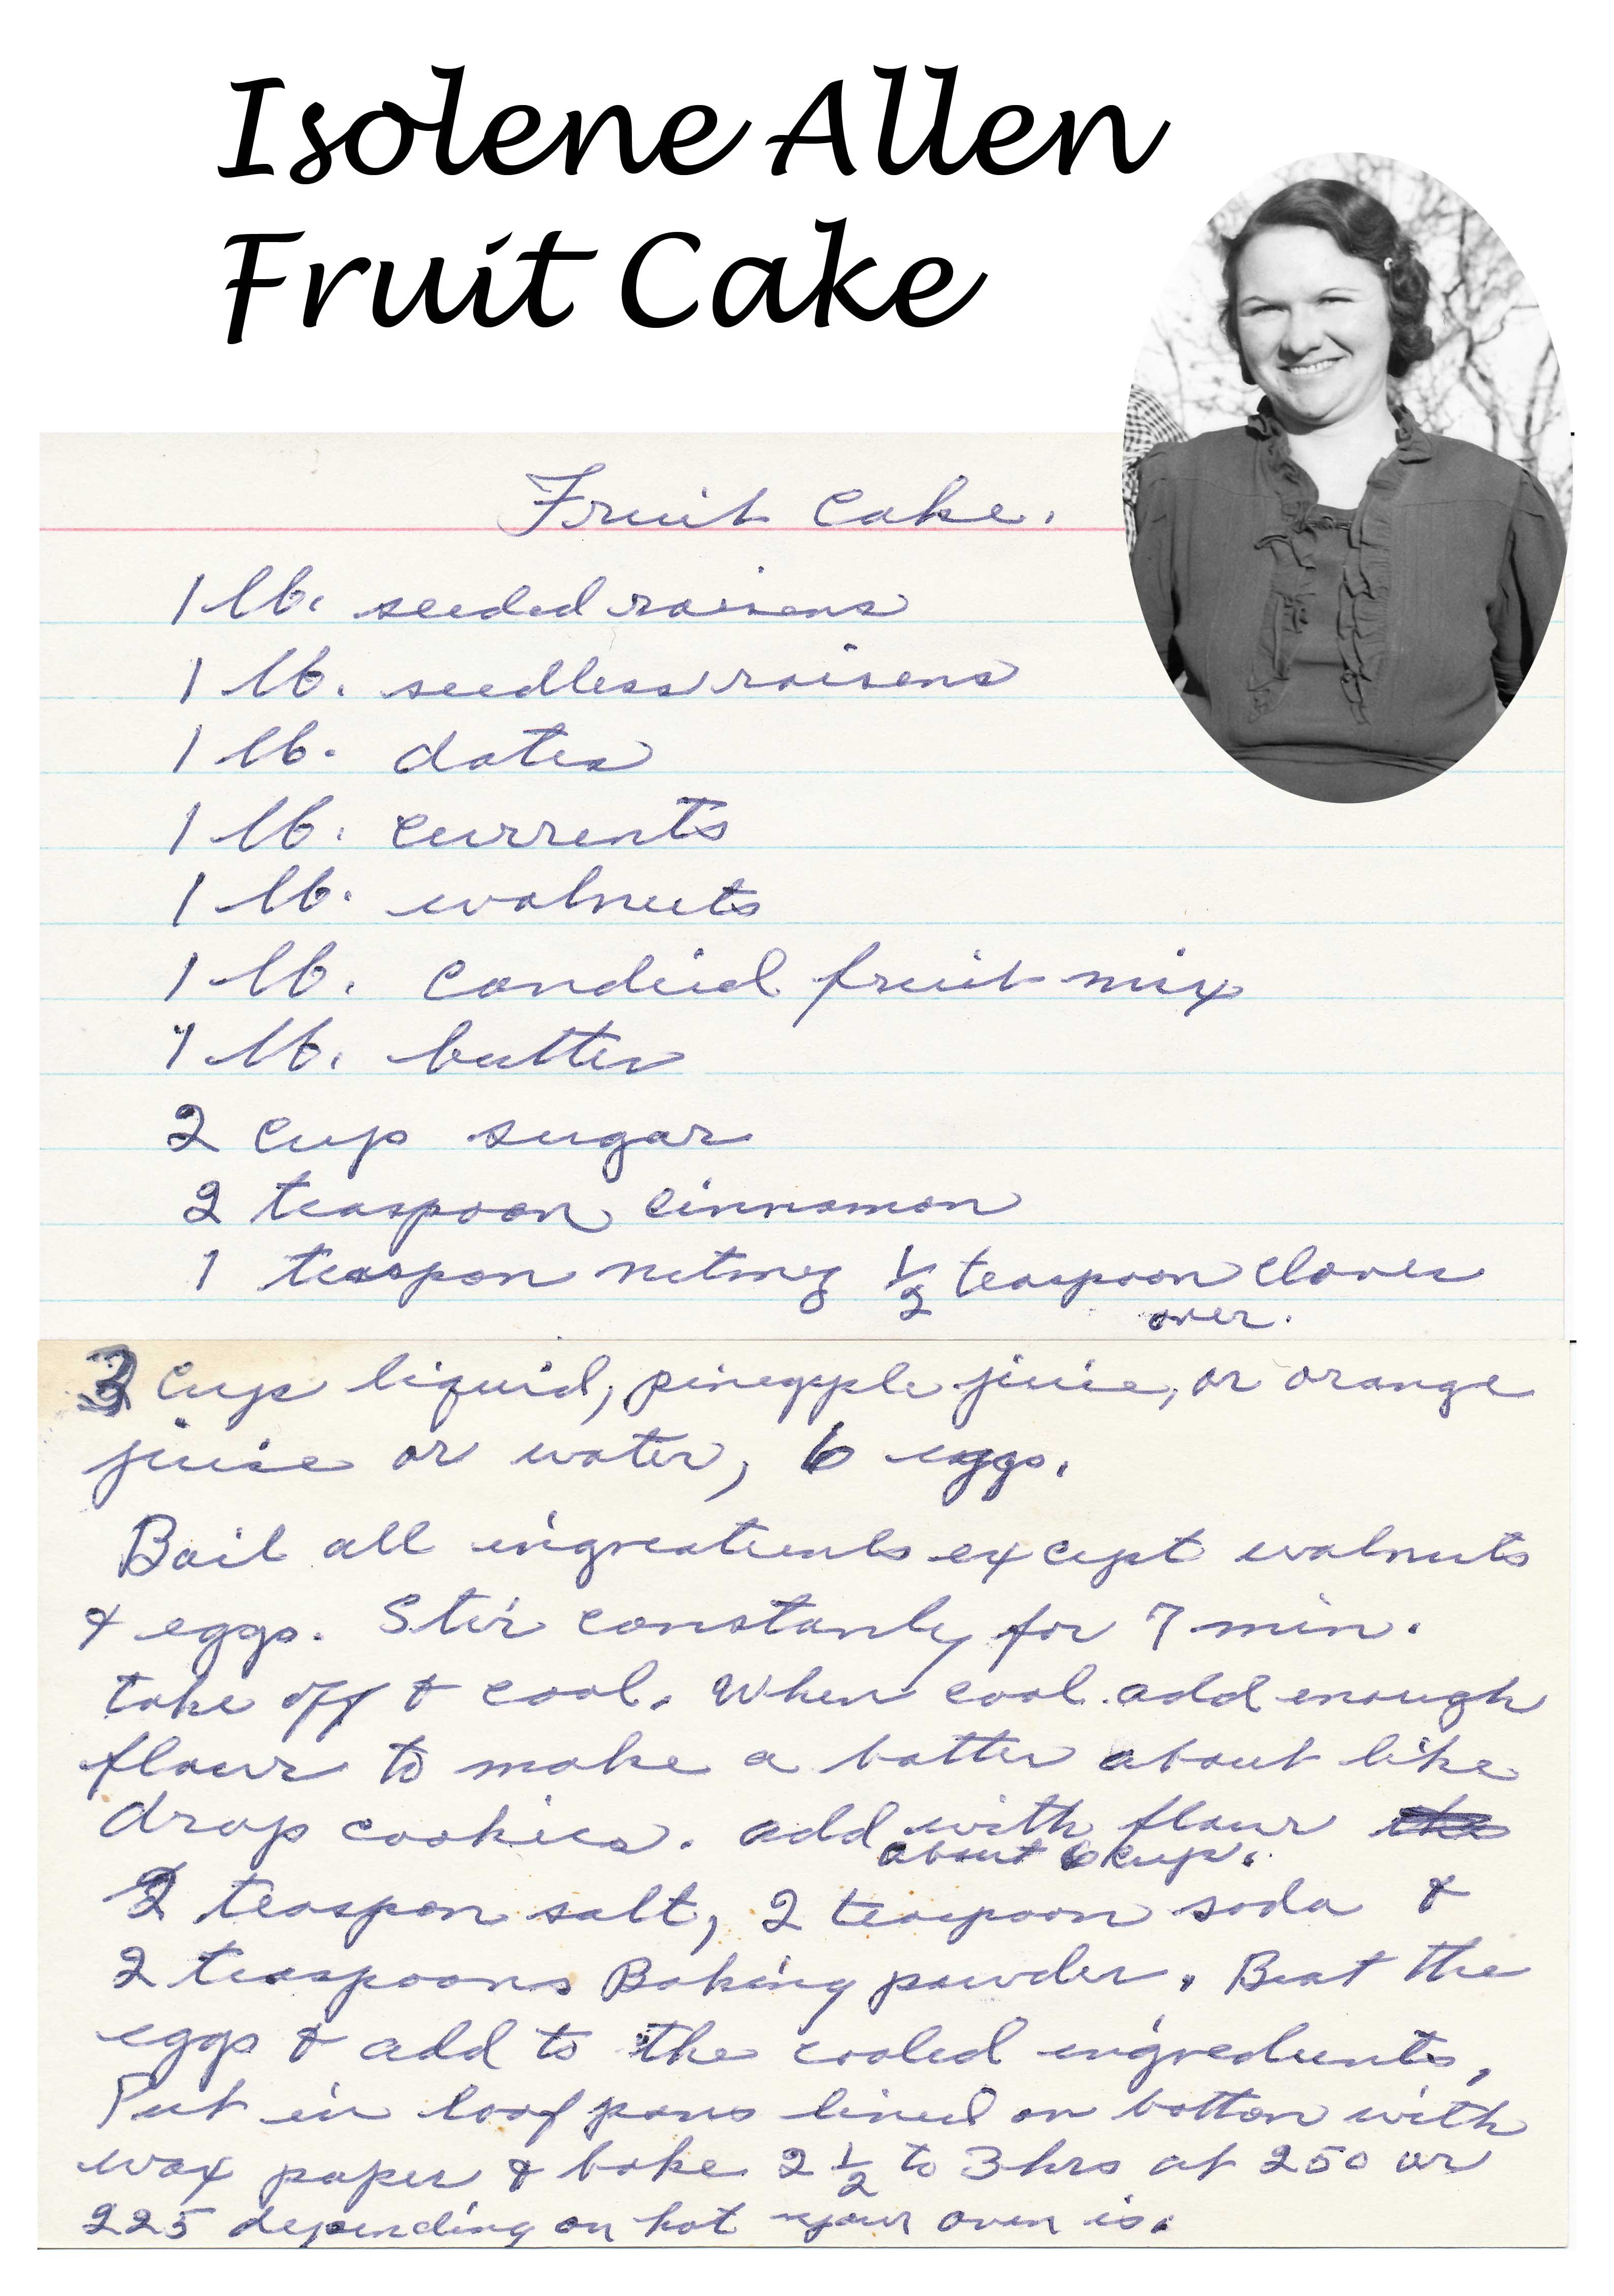 Isolene Allen
Fruit Cake
Fruit Cake.
1 lb. seeded raisens
1 lb. seedless raisens
1 lb. dates
1 lb. currents
1 lb. walnuts
1 lb. candied fruit mix
1 lb. butter
2 cup sugar
2 teaspoon cinnamon
1 teaspon nutmeg 1/2 teaspoon cloves
over.
3 cups liquid, pineapple juice, or orange
juice or water, 6 eggs.
Boil all ingreatients except walnuts
& eggs. Stir constanly for 7 min.
take off & cool. When cool add enough
flour to make a batter about like
drop cookies. add with flour
about 6 cup.
2 teaspon salt, 2 teaspoon soda &
2 teaspoons Baking powder. Beat the
eggs & add to the cooled ingredients,
Put in loaf pans lined on botton with
wax paper & bake 2 1/2 to 3 hrs at 250 or
225 depending on hot your oven is.